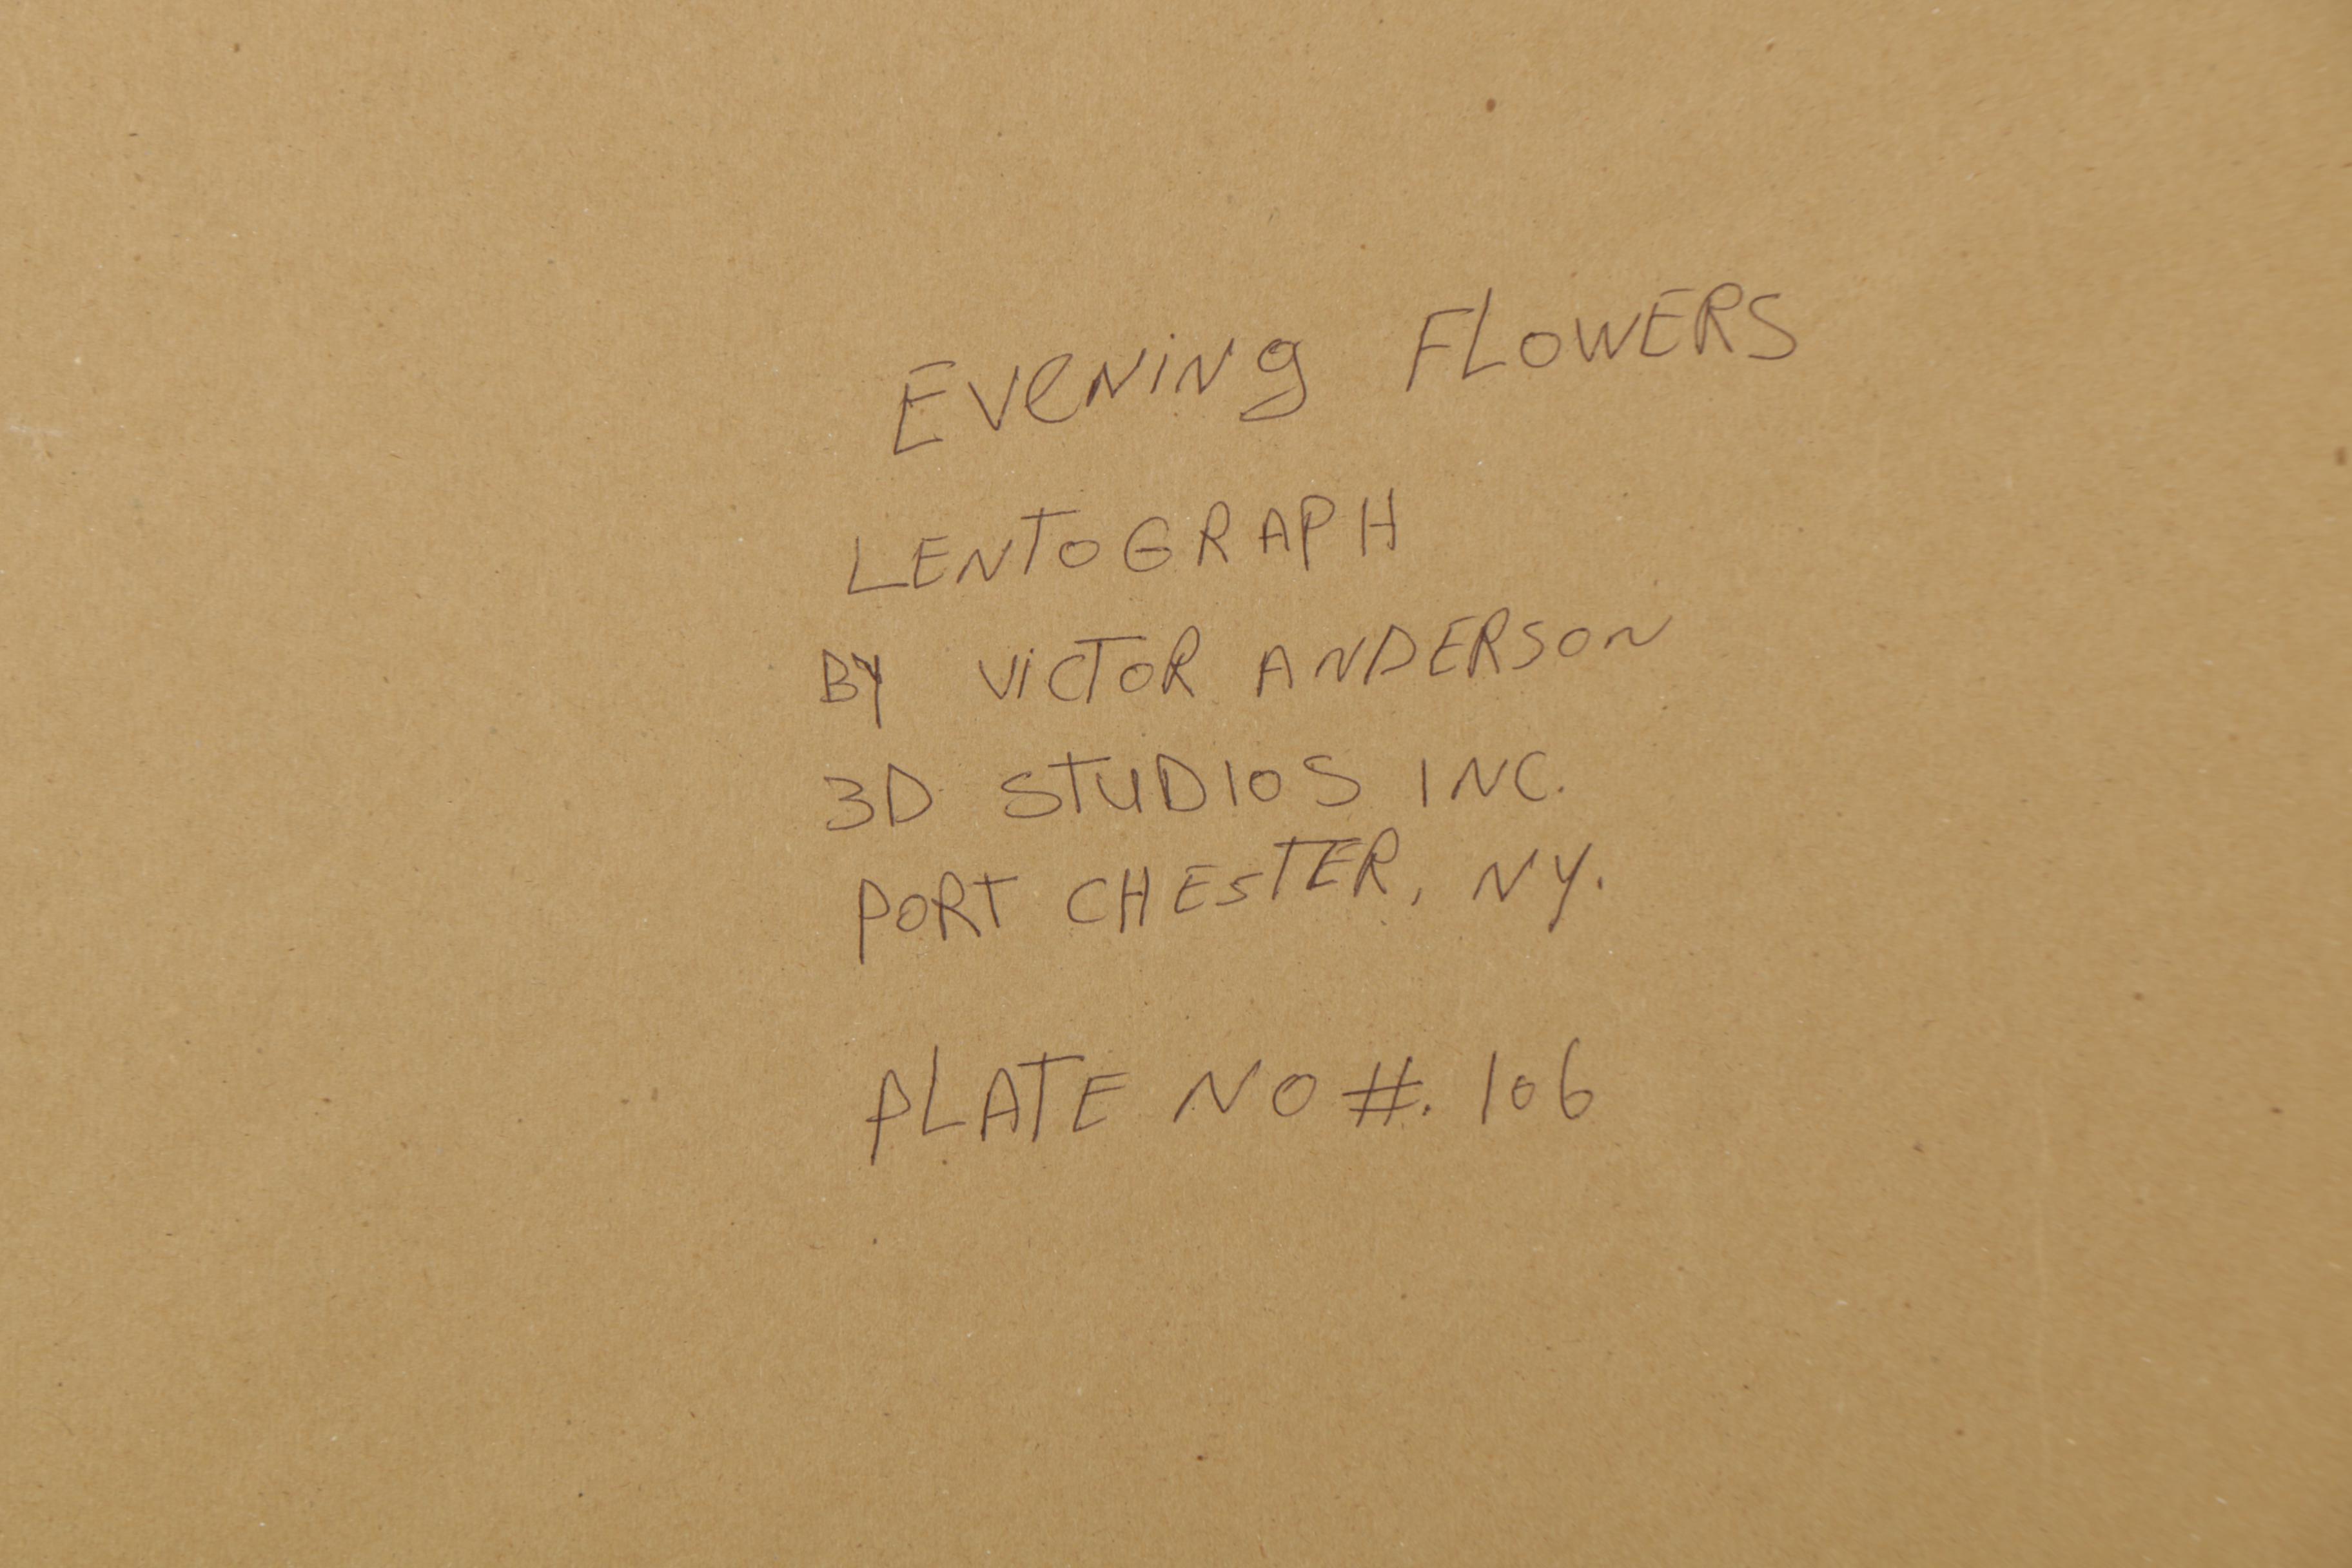 EVENING FLOWERS
LENTOGRAPH
BY VICTOR ANDERSON
3D STUDIOS INC.
PORT CHESTER, NY.
PLATE NO #. 106